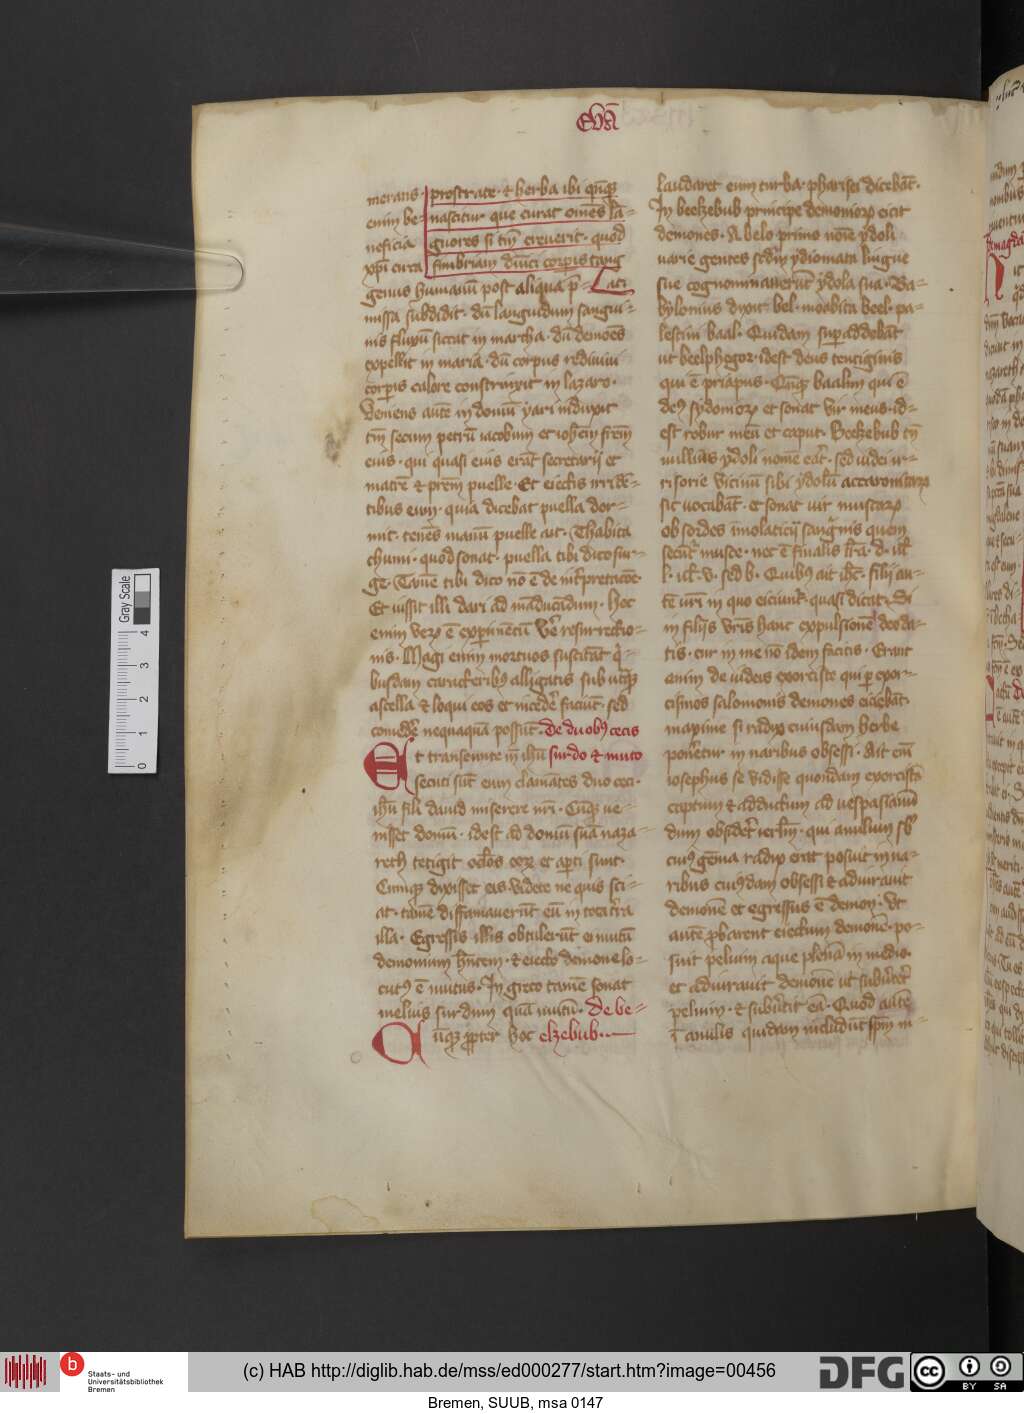 Ewā
merans · prostrate · ⁊ herba ibi qn̄qꝫ
enim be= nascitur que curat om̄es lā=
neficia guores si tm̄ creuerit · quod
xp̄i cura fimbriam diuīci corporis tang
genus humanū post aliqua p̄= Lati
missa subdidit · dū languidum sangui=
nis fluxū siccat in martha · dū demōes
expellit in maria · dū corpus rediuiui
corporis calore constrinxit in lazaro ·
Veniens autē in domū yari induxit
tm̄ secum petrū iacobum et ioh̄em frēm
eius · qui quasi eius erāt secretarij et
matrē ⁊ prēm puelle · Et eiectis irridē=
tibus eum · quia dicebat puella dor=
mit · tenēs manū puelle ait · Thabita
chumi · quod sonat · puella tibi dico sur=
ge · Tamē tibi dico nō ē de int̄pretacōe
Et iussit illi dari ad māducādum · Hoc
enim verꝫ ē experimētū vē resurrectio=
nis · Magi enim mortuos suscitāt q̄=
busdam caractⁱeribꝫ alligatis sub utqꝫ
ascella ⁊ loqui eos et incedē faciūt · sed
comedē nequaquā possūt · de duobꝫ cecis
Et transeunte in ihū surdo ⁊ muto
secuti sūt eum clamātes duo ceci ·
ihū fili dauid miserere nr̄i · Cūqꝫ ue=
nisset domū · idest ad domū suā naza=
reth tetigit oc̄los eoꝝ et aperti sunt ·
Cumqꝫ dixisset eis videte ne quis sci=
at · tamē diffamauerūt eū in tota t̄ra
illa · Egressis illis obtulerūt ei mutū
demonium hn̄tem · ⁊ eiecto demone lo=
cutꝫ ē mutus · In greco tamē sonat
melius surdum quā mutū · de be=
Cūqꝫ propter hoc elzebub ·
laudaret eum turba · pharisei dicebāt ·
In beelzebub principe demonioꝝ eicit
demones · A belo primo nōie ydoli
uarie gentes scd̄m ydiomata lingue
sue cognominauerūt ydola sua · Ba=
bylonius dixit bel · moabita beel · pa=
lestini baal · Quidam superaddebāt
ut beelphegor · idest deus tentiginis
qui ē priapus · Cūqꝫ baalim qui ē
deꝫ sydonioꝝ et sonat vir meus · id=
est robur meū et caput · Beelzebub tn̄
nullius ydoli nomē eāt · sed iudei ir=
risorie vicinū sibi ydolū accaronitaꝝ
sic uocabāt · et sonat uir muscaꝝ
ob sordes imolaticij sangⁱnis quem
secūtᵉ musce · nec ē finalis lr̄a · d · ul̄
l · ul̄ · v · sed b · Quibꝫ ait ih̄c · filij au=
tē vr̄i in quo eiciunt quasi dicat Si
in filijs vr̄is hanc expulsionē deo da=
tis · cur in me nō idem facitis · Erant
enim de iudeis exorciste qui p̄ exor=
cismos salomonis demones eiciebāt ·
maxime si radix cuiusdam herbe
ponēretur in naribus obsessi · Ait em̄
iosephus se vidisse quondam exorcistā
captum ⁊ adductum ad uespasianū
dum obsidēt ierlm̄ · qui anulum sb̄
cuiꝫ gēma radix erat posuit in na=
ribus cuiꝫdam obsessi ⁊ adiurauit
demonē et egressus ē demon · Vt
autē probarent eiectum demonē · po=
suit peluim aque plenā in medio ·
et adiurauit demonē ut subūtet
peluim · ⁊ subūtit eā · Quod autē
ī anulis quidam includūt sp̄m in=
Gray Scale
0 1 2 3 4
(c) HAB http://diglib.hab.de/mss/ed000277/start.htm?image=00456
b
Staats- und
Universitätsbibliothek
Bremen
DFG
cc BY SA
Bremen, SUUB, msa 0147